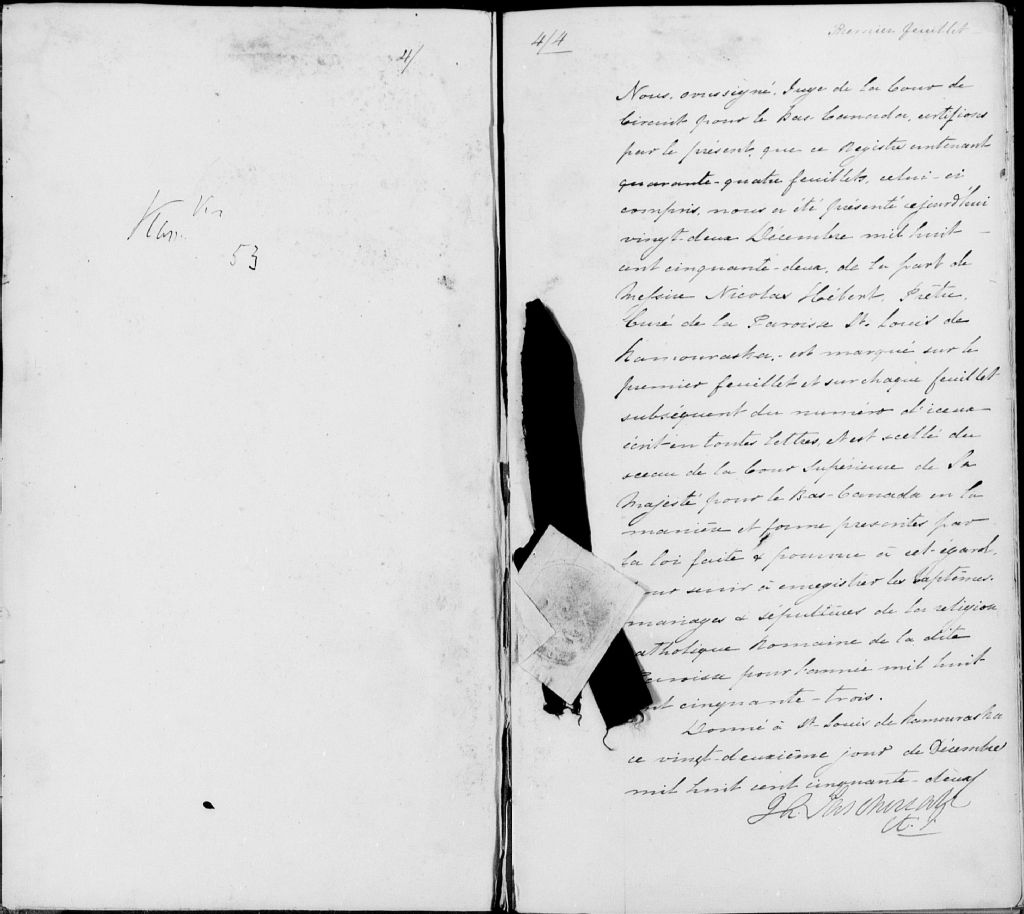 4/
Kam
53
4/4
Premier feuillet
Nous, soussigné, Juge de la Cour de
Circuit pour le Bas Canada, certifions
par le présent, que ce Registre contenant
quarante-quatre feuillets, celui-ci
compris, nous a été présenté cejourd'hui
vingt-deux Décembre mil huit
cent cinquante-deux, de la part de
Messire Nicolas Hébert, Prêtre,
Curé de la Paroisse St. Louis de
Kamouraska, est marqué sur le
premier feuillet et sur chaque feuillet
subséquent du numéro d'iceux
écrit en toutes lettres, et est scellé du
sceau de la Cour Supérieure de Sa
Majesté pour le Bas-Canada en la
manière et forme prescrites par
la loi faite & pourvue à cet égard,
pour servir à enregistrer les baptêmes,
mariages & sépultures de la religion
Catholique Romaine de la dite
Paroisse pour l'année mil huit
cent cinquante-trois.
Donné à St. Louis de Kamouraska
ce vingt-deuxième jour de Décembre
mil huit cent cinquante-deux